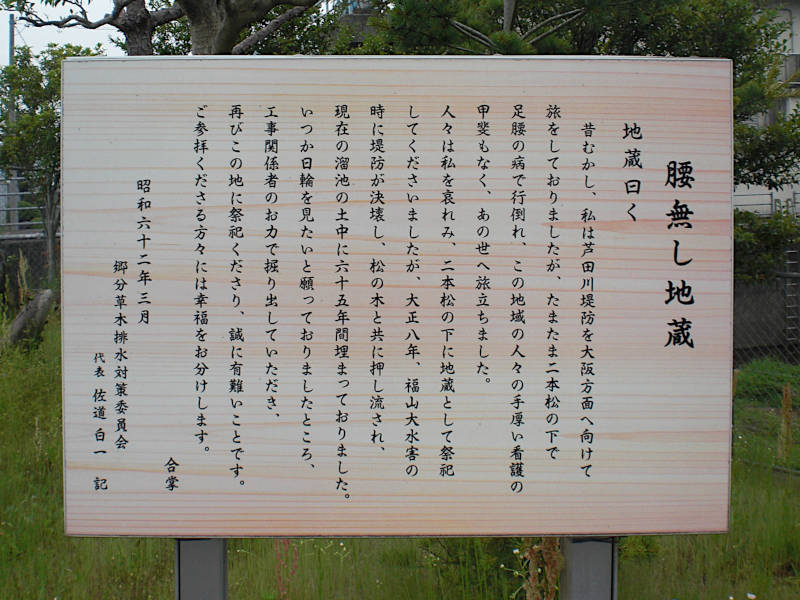 腰無し地蔵
地蔵曰く
昔むかし、私は芦田川堤防を大阪方面へ向けて
旅をしておりましたが、たまたま二本松の下で
足腰の病で行倒れ、この地域の人々の手厚い看護の
甲斐もなく、あの世へ旅立ちました。
人々は私を哀れみ、二本松の下に地蔵として祭祀
してくださいましたが、大正八年、福山大水害の
時に堤防が決壊し、松の木と共に押し流され、
現在の溜池の土中に六十五年間埋まっておりました。
いつか日輪を見たいと願っておりましたところ、
工事関係者のお力で掘り出していただき、
再びこの地に祭祀くださり、誠に有難いことです。
ご参拝くださる方々には幸福をお分けします。
合掌
昭和六十二年三月
郷分草木排水対策委員会
代表 佐道白一 記